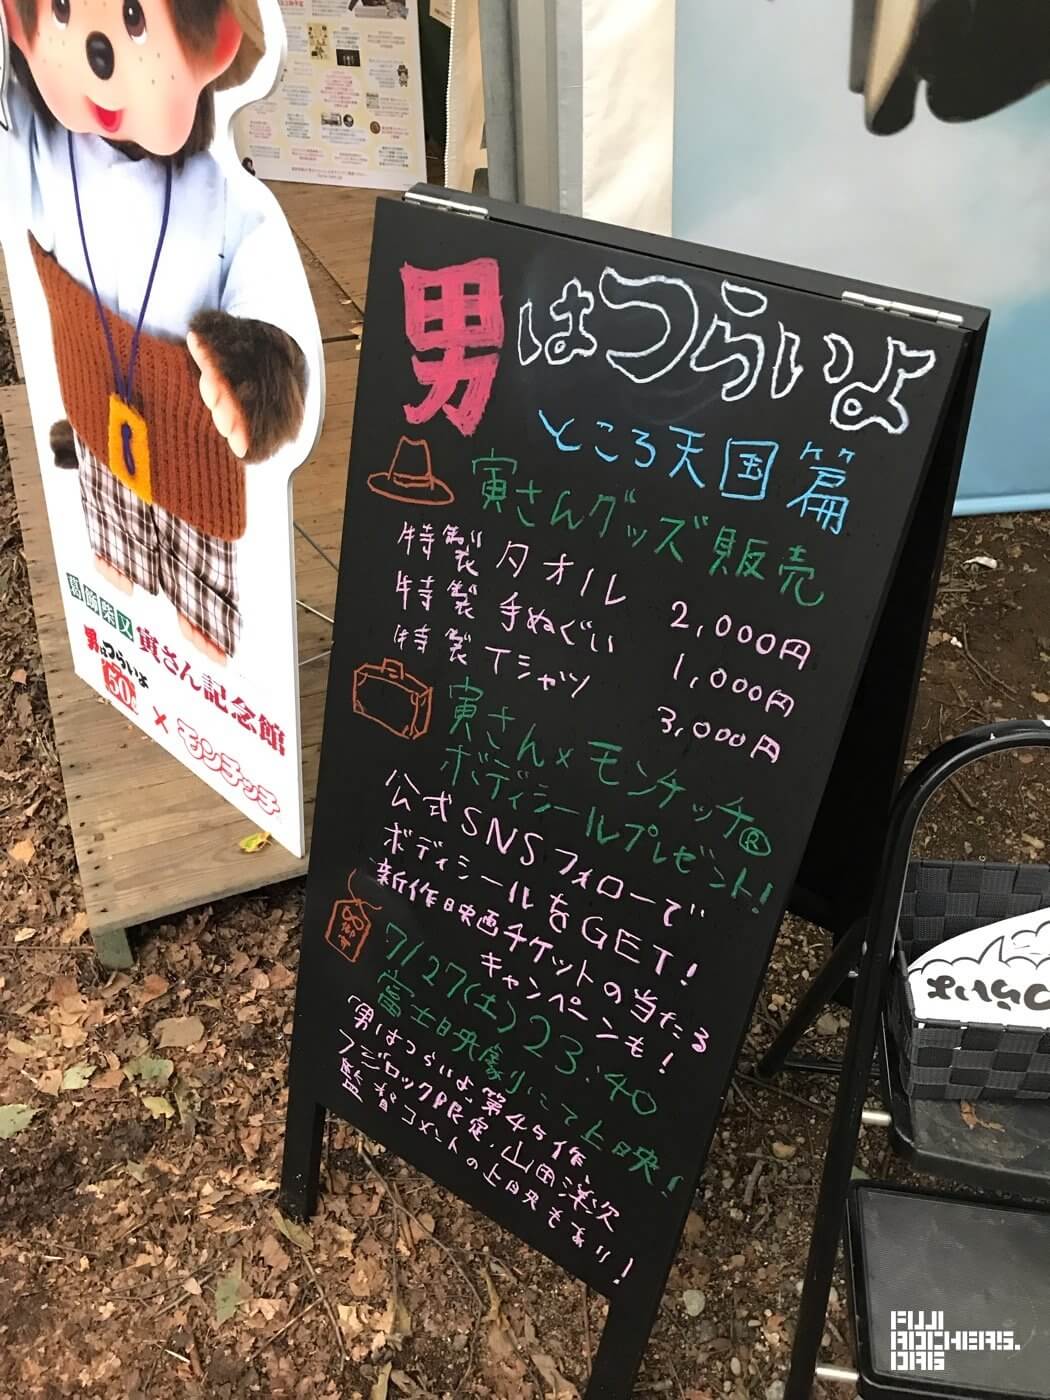 男はつらいよ
ところ天国篇
寅さんグッズ販売
特製タオル 2,000円
特製手ぬぐい 1,000円
特製Tシャツ 3,000円
寅さん×モンチッチ®
ボディシールプレゼント!
公式SNSフォローで
ボディシールをGET!
新作映画チケットの当たる
キャンペーンも!
7/27(土)23:40
富士映劇にて上映!
「男はつらいよ」第45作
フジロック限定、山田洋次
監督コメントの上映もあり!
葛飾柴又 寅さん記念館
男はつらいよ
50
× モンチッチ
FUJI
ROCKERS.
ORG